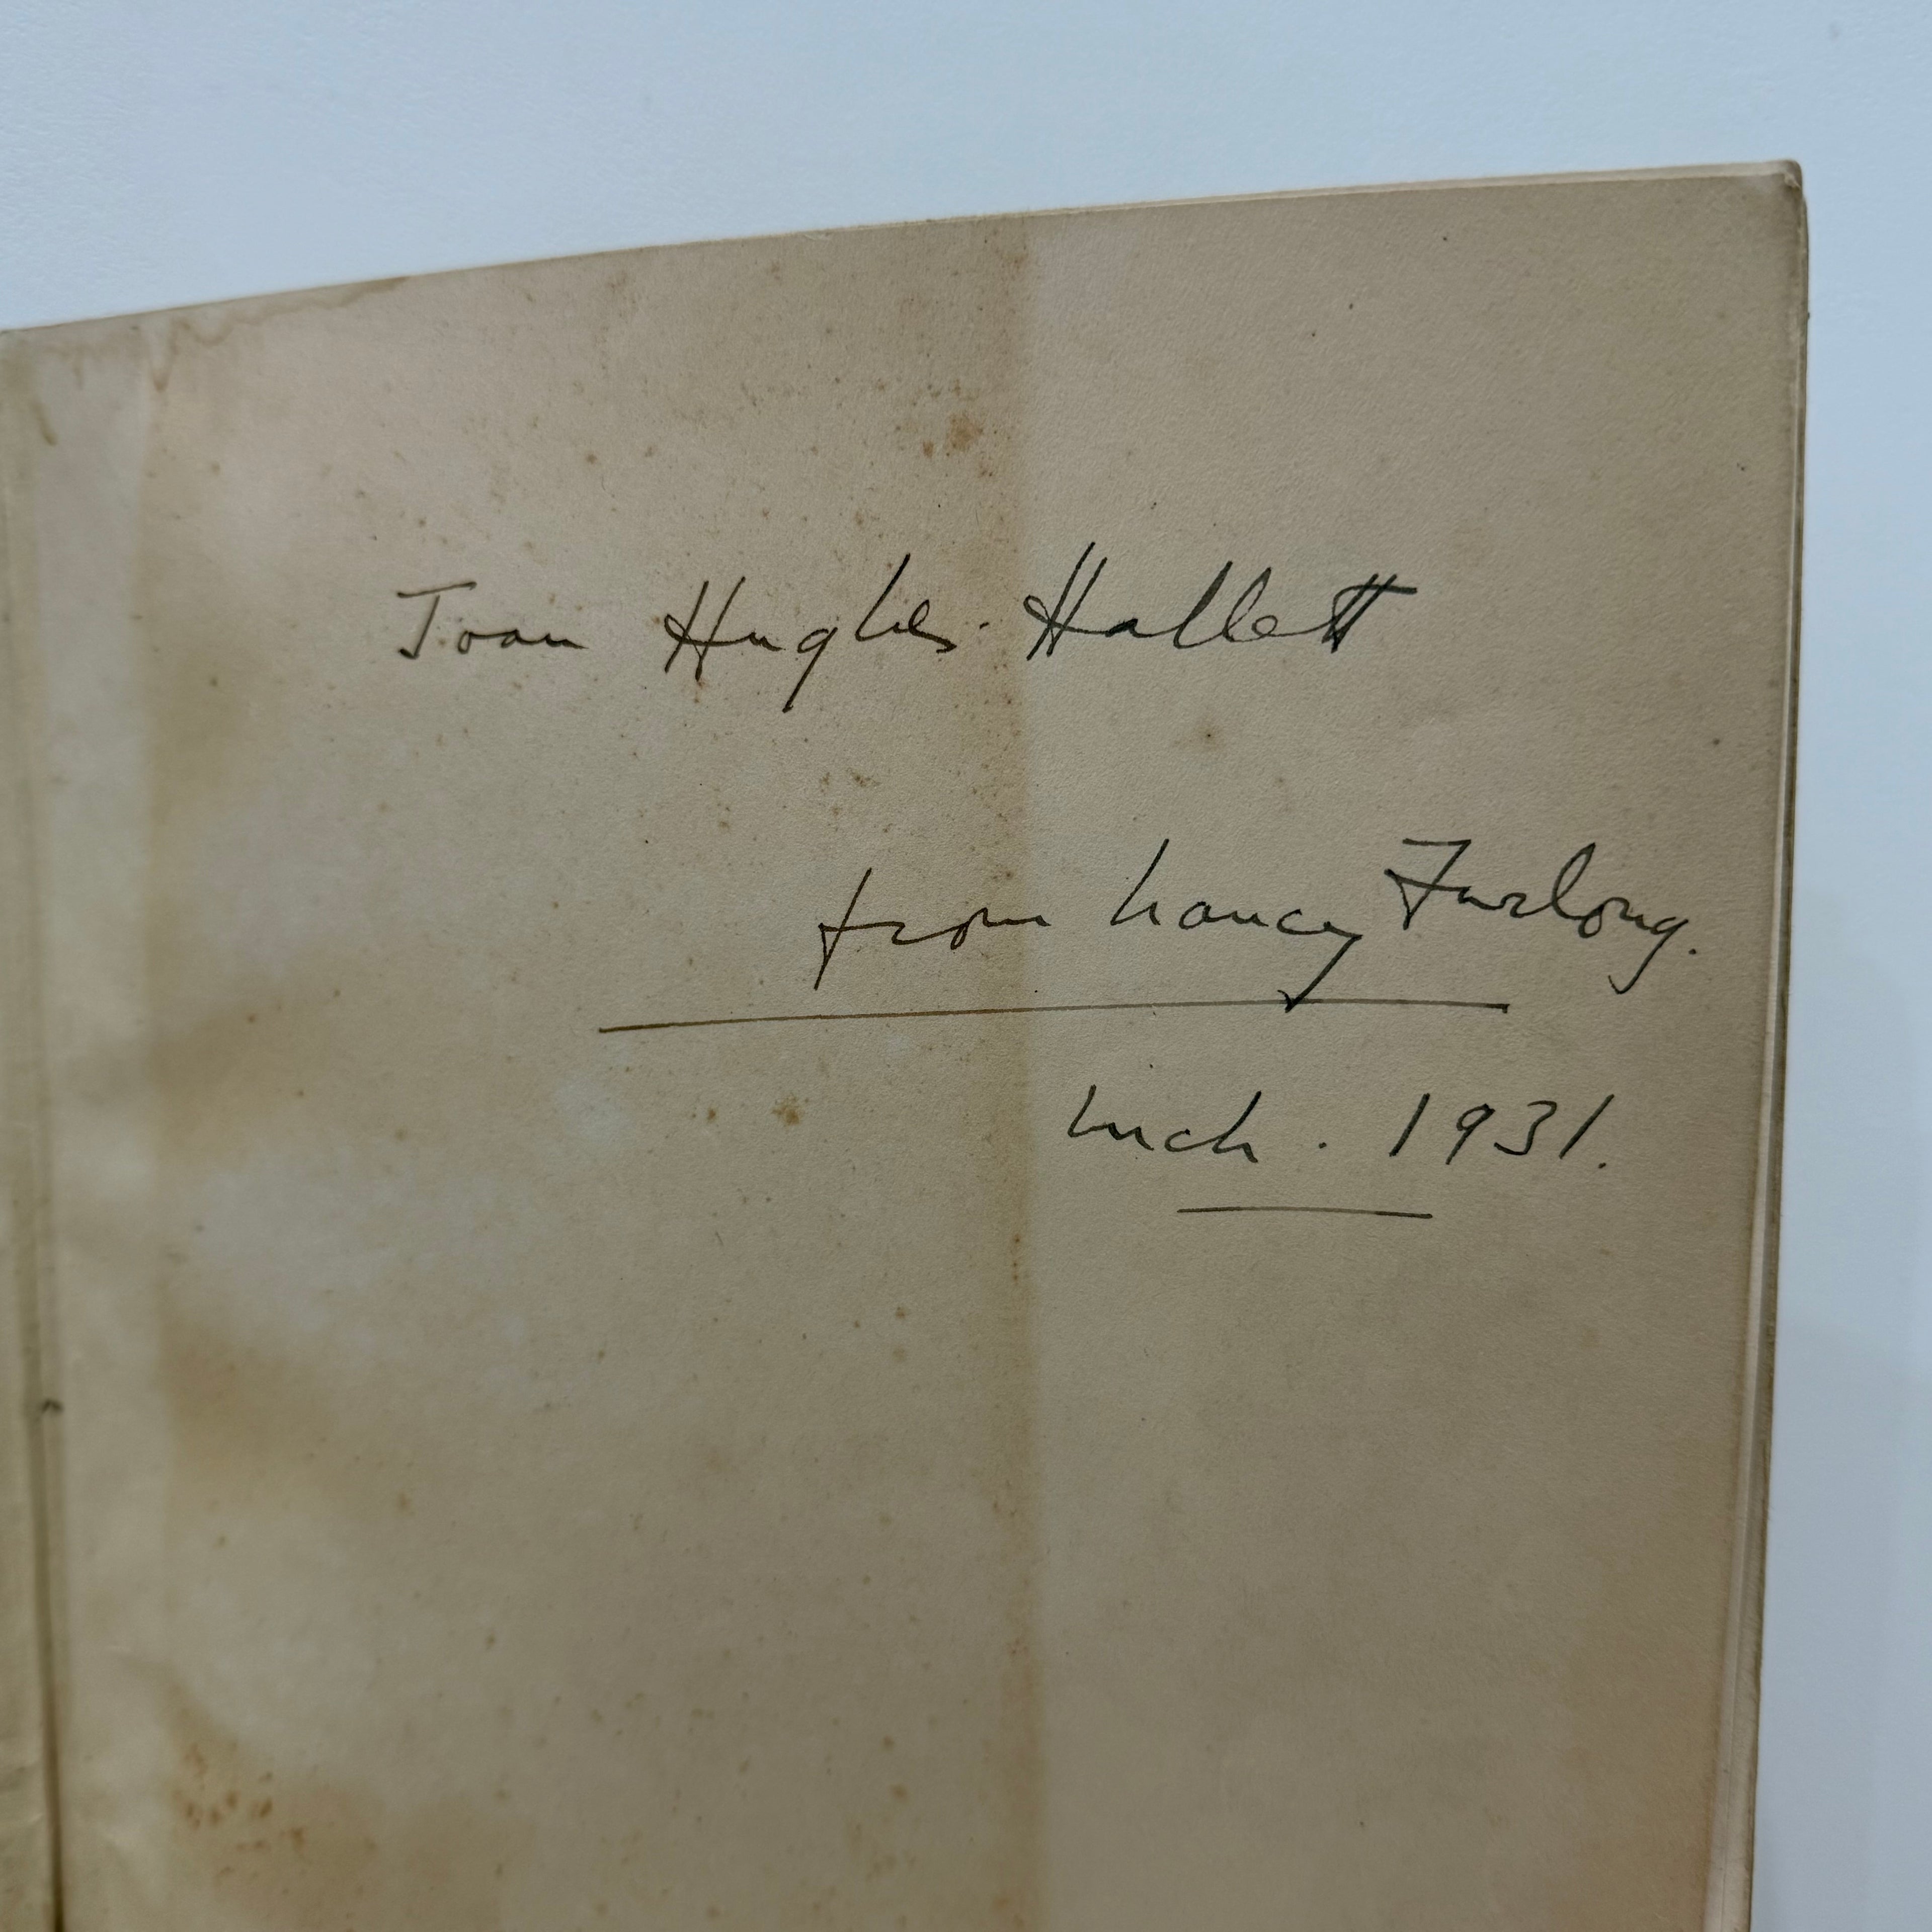 Joan Hughes-Hallett
from Nancy Furlong.
1931.